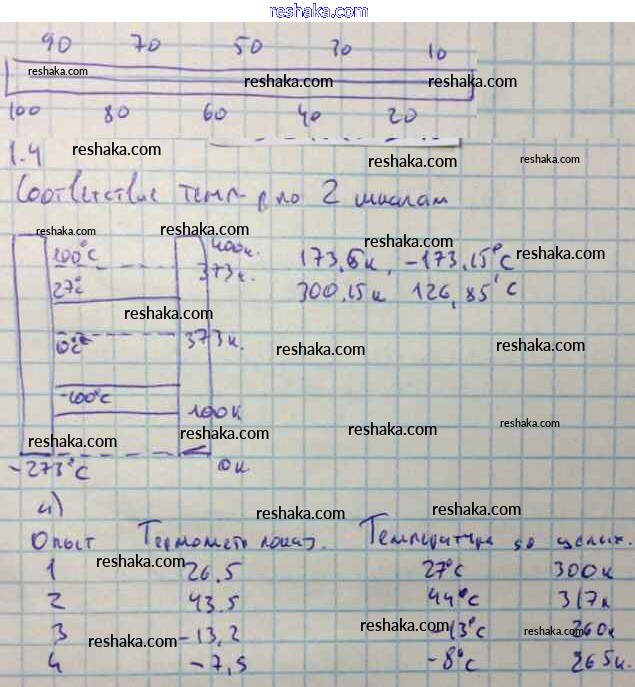 reshaka.com
90 70 50 30 10
reshaka.com reshaka.com reshaka.com
100 80 60 40 20
1.4 reshaka.com reshaka.com reshaka.com
Соответствие темп-р по 2 шкалам
reshaka.com reshaka.com reshaka.com
100°C 400к. 173,15к, -173,15°C reshaka.com
27° 373к. 300,15к 126,85°C
reshaka.com reshaka.com
0° 373к. reshaka.com reshaka.com
-100°C 100к
reshaka.com reshaka.com reshaka.com reshaka.com
-273°C 0к
а) reshaka.com reshaka.com
Опыт Термометр показ. Температура до целых.
reshaka.com reshaka.com
1 26,5 27°C 300к
2 43,5 44°C 317к
reshaka.com
3 -13,2 -13°C 260к
reshaka.com reshaka.com reshaka.com
4 -7,5 -8°C 265к.